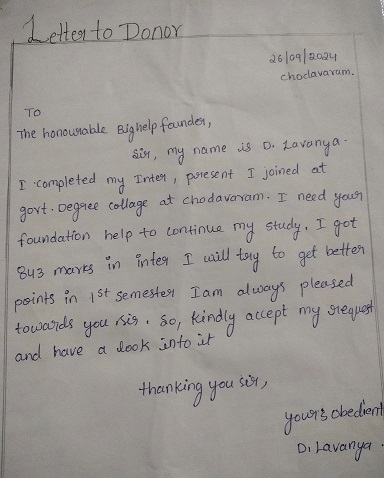 Letter to Donor
26/09/2024
chodavaram.
TO
The honourable Bighelp founder,
sir, my name is D. Lavanya.
I completed my Inter, present I joined at
govt. Degree collage at chodavaram. I need your
foundation help to continue my study. I got
843 marks in inter I will try to get better
points in 1st semester I am always pleased
towards you sir. So, kindly accept my request
and have a look into it
thanking you sir,
yours obedient
D. Lavanya.